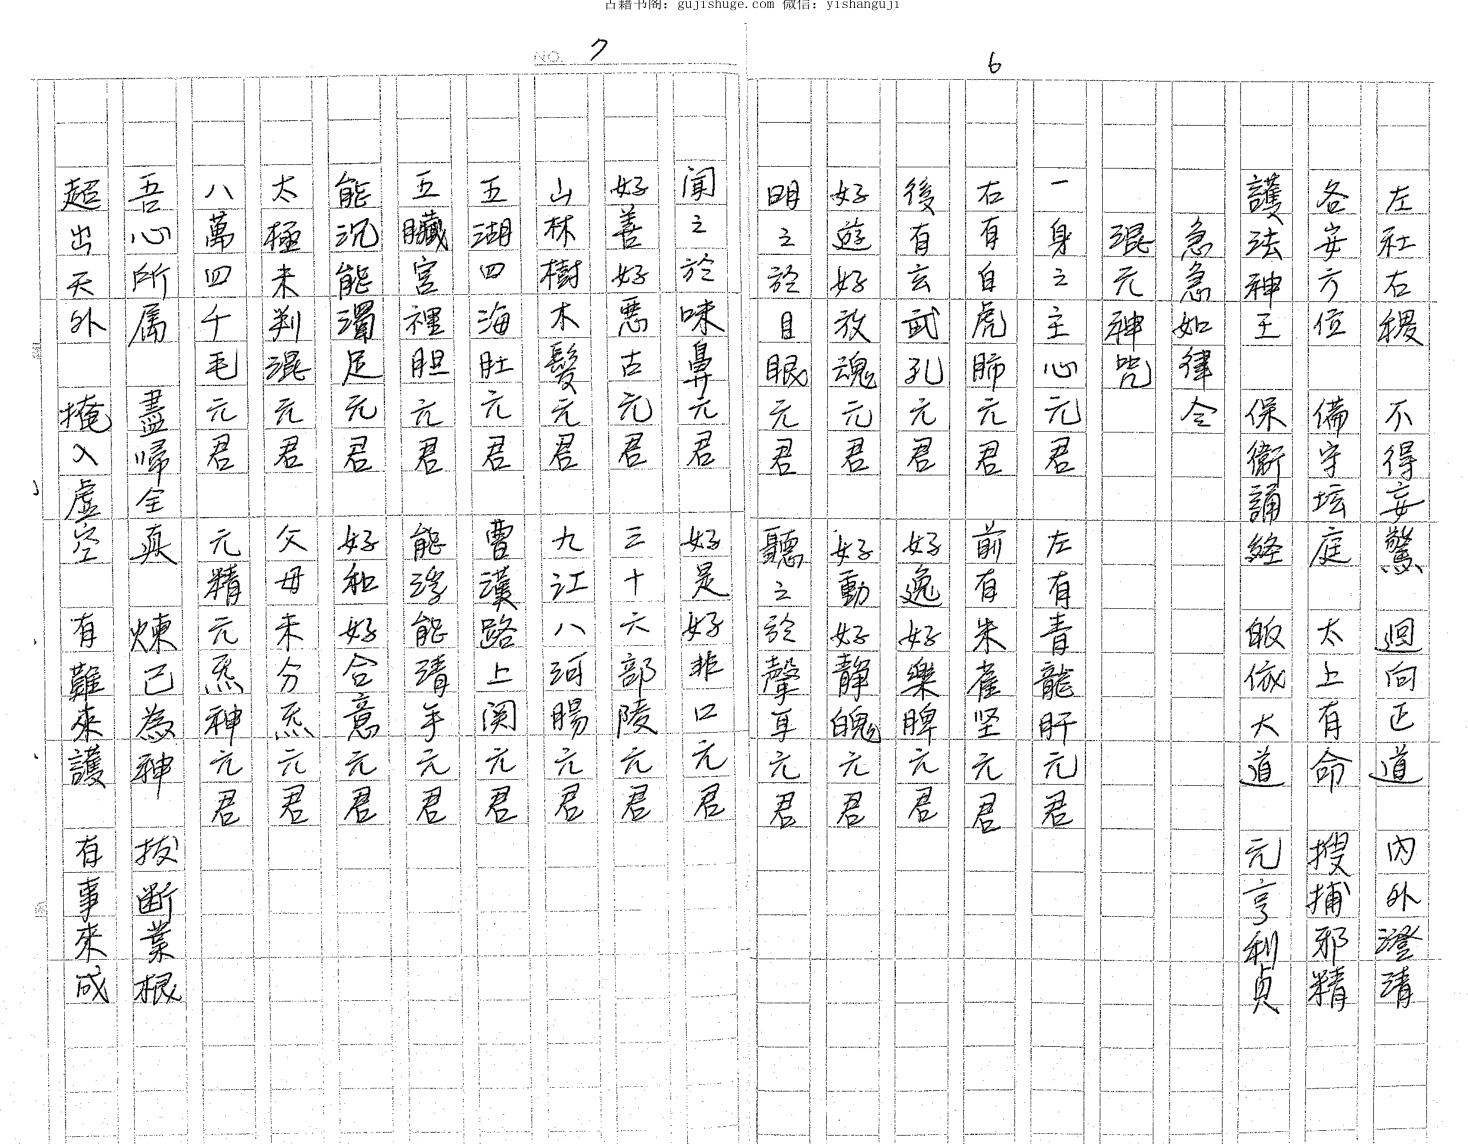 古籍书阁：gujishuge.com 微信：yishanguji
6
左社右稷　不得妄驚　迴向正道　內外澄清
各安方位　備守坛庭　太上有命　搜捕邪精
護法神王　保衛誦經　皈依大道　元亨利貞
急急如律令
混元神咒
一身之主心元君　左有青龍肝元君
右有白虎肺元君　前有朱雀坚元君
後有玄武孔元君　好逸好樂脾元君
好遊好放魂元君　好動好靜魄元君
明之於目眼元君　聽之於聲耳元君
NO. 7
聞之於味鼻元君　好是好非口元君
好善好惡古元君　三十六部陵元君
山林樹木髮元君　九江八河腸元君
五湖四海肚元君　曹溪路上関元君
五臟宮裡胆元君　能浮能清手元君
能沉能濁足元君　好和好合意元君
太極未判混元君　父母未分炁元君
八萬四千毛元君　元精元炁神元君
吾心所属　盡歸全真　煉己為神　拔斷業根
超出天外　掩入虛空　有難來護　有事來成